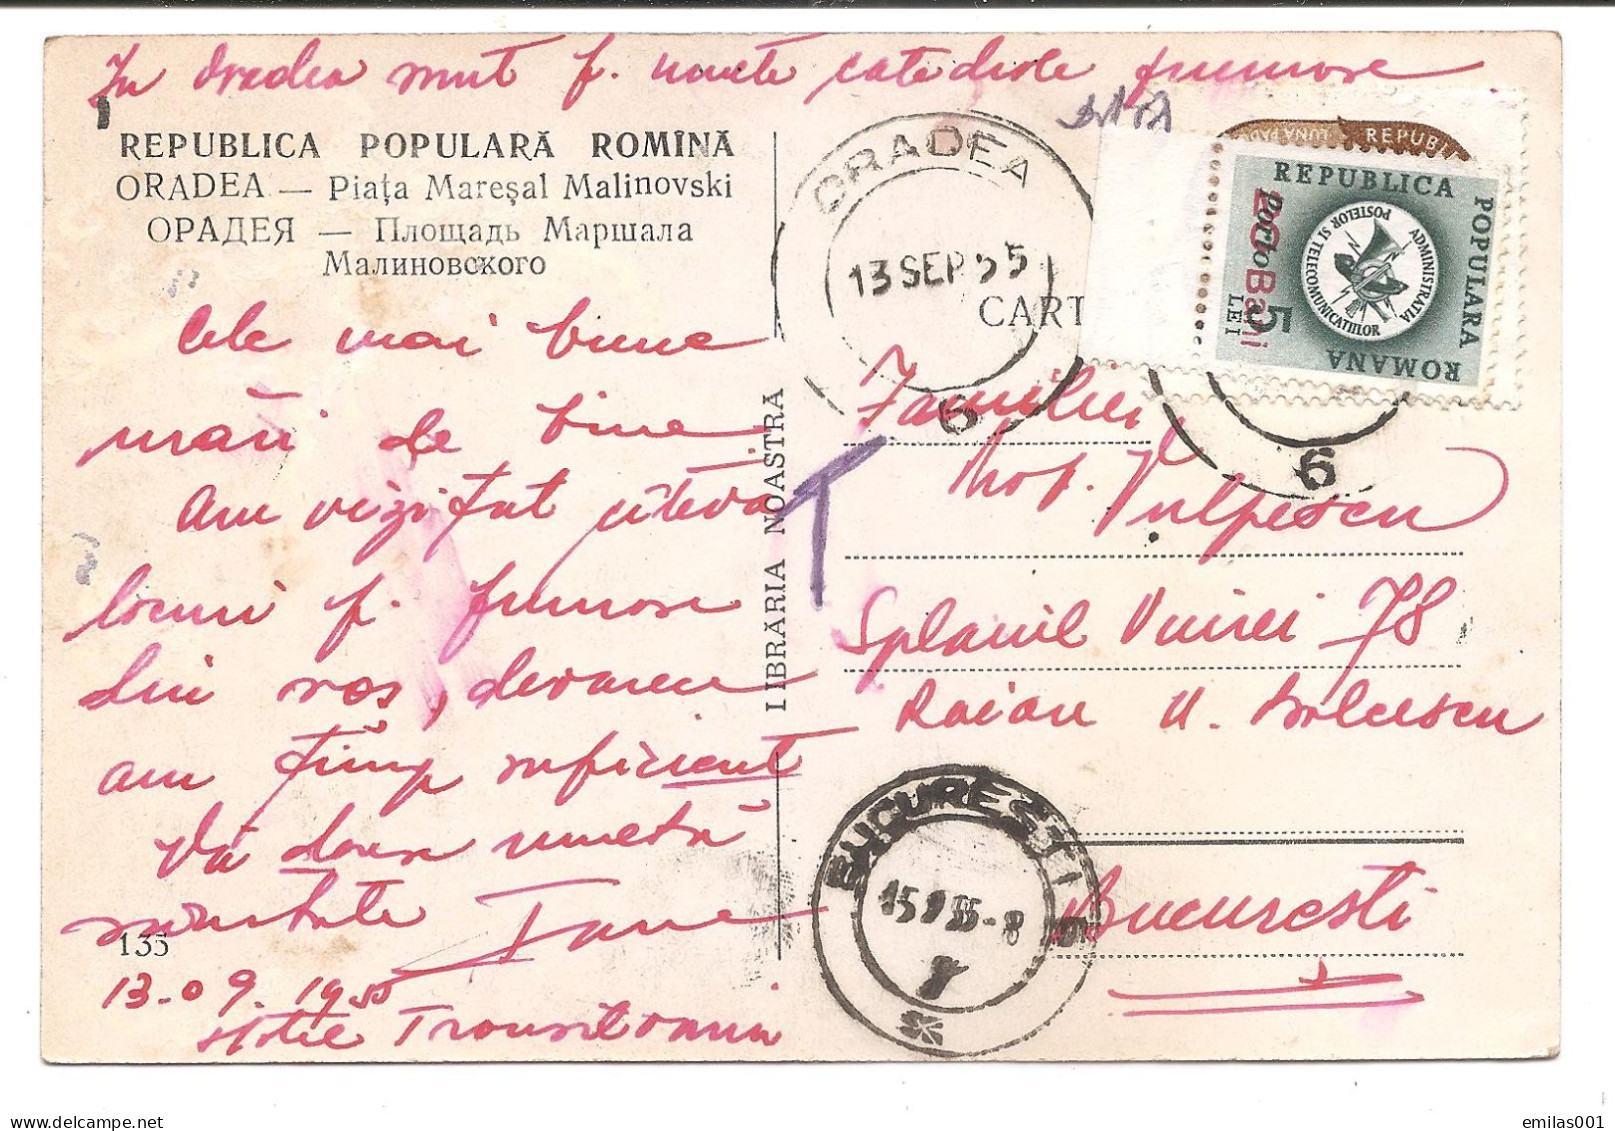 In Oradea sunt f. multe catedrale frumoase
REPUBLICA POPULARĂ ROMÎNĂ
ORADEA — Piața Mareşal Malinovski
ОРАДЕЯ — Площадь Маршала
Малиновского
Cele mai bune
urări de bine
Am vizitat câteva
locuri f. frumoase
din oraș, deoarece
am timp suficient
Vă doresc multă
sănătate
135
13.09.1955
Hotel Transilvania
LIBRĂRIA NOASTRĂ
ORADEA
13 SEP 55
6
CART
T
LUNA PAD
REPUBLI
REPUBLICA POPULARA ROMANA
ADMINISTRATIA POSTELOR SI TELECOMUNICATIILOR
Porto
20 Bani
5
LEI
6
Familiei
Prof. Vulpescu
Splaiul Unirei 78
Raion N. Bălcescu
Bucuresti
BUCUREȘTI
15 9 55-8